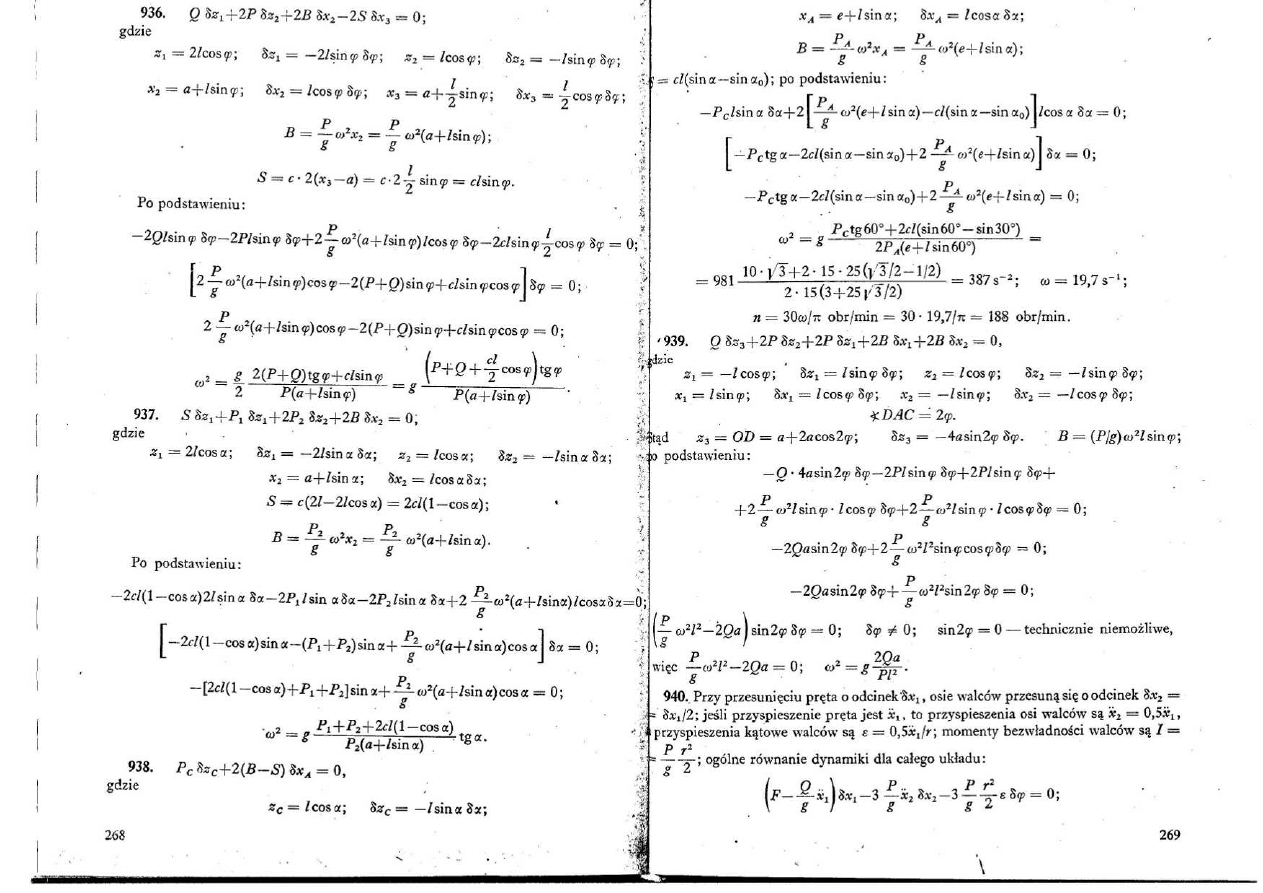 936. Q δz₁+2P δz₂+2B δx₂−2S δx₃ = 0;
gdzie
z₁ = 2lcosφ; δz₁ = −2lsinφ δφ; z₂ = lcosφ; δz₂ = −lsinφ δφ;
x₂ = a+lsinφ; δx₂ = lcosφ δφ; x₃ = a+(l/2)sinφ; δx₃ = (l/2)cosφ δφ;
B = (P/g)ω²x₂ = (P/g)ω²(a+lsinφ);
S = c·2(x₃−a) = c·2(l/2)sinφ = clsinφ.
Po podstawieniu:
−2Qlsinφ δφ−2Plsinφ δφ+2(P/g)ω²(a+lsinφ)lcosφ δφ−2clsinφ(l/2)cosφ δφ = 0;
[2(P/g)ω²(a+lsinφ)cosφ−2(P+Q)sinφ+clsinφcosφ]δφ = 0;
2(P/g)ω²(a+lsinφ)cosφ−2(P+Q)sinφ+clsinφcosφ = 0;
ω² = (g/2) (2(P+Q)tgφ+clsinφ)/(P(a+lsinφ)) = g ((P+Q+(cl/2)cosφ)tgφ)/(P(a+lsinφ)).
937. S δz₁+P₁ δz₁+2P₂ δz₂+2B δx₂ = 0;
gdzie
z₁ = 2lcosα; δz₁ = −2lsinα δα; z₂ = lcosα; δz₂ = −lsinα δα;
x₂ = a+lsinα; δx₂ = lcosα δα;
S = c(2l−2lcosα) = 2cl(1−cosα);
B = (P₂/g)ω²x₂ = (P₂/g)ω²(a+lsinα).
Po podstawieniu:
−2cl(1−cosα)2lsinα δα−2P₁lsinα δα−2P₂lsinα δα+2(P₂/g)ω²(a+lsinα)lcosα δα=0;
[−2cl(1−cosα)sinα−(P₁+P₂)sinα+(P₂/g)ω²(a+lsinα)cosα]δα = 0;
−[2cl(1−cosα)+P₁+P₂]sinα+(P₂/g)ω²(a+lsinα)cosα = 0;
ω² = g (P₁+P₂+2cl(1−cosα))/(P₂(a+lsinα)) tgα.
938. P_C δz_C+2(B−S) δx_A = 0,
gdzie
z_C = lcosα; δz_C = −lsinα δα;
268
x_A = e+lsinα; δx_A = lcosα δα;
B = (P_A/g)ω²x_A = (P_A/g)ω²(e+lsinα);
= cl(sinα−sinα₀); po podstawieniu:
−P_C lsinα δα+2[(P_A/g)ω²(e+lsinα)−cl(sinα−sinα₀)]lcosα δα = 0;
[−P_C tgα−2cl(sinα−sinα₀)+2(P_A/g)ω²(e+lsinα)]δα = 0;
−P_C tgα−2cl(sinα−sinα₀)+2(P_A/g)ω²(e+lsinα) = 0;
ω² = g (P_C tg60°+2cl(sin60°−sin30°))/(2P_A(e+lsin60°)) =
= 981 (10·√3+2·15·25(√3/2−1/2))/(2·15(3+25√3/2)) = 387 s⁻²; ω = 19,7 s⁻¹;
n = 30ω/π obr/min = 30·19,7/π = 188 obr/min.
939. Q δz₃+2P δz₂+2P δz₁+2B δx₁+2B δx₂ = 0,
gdzie
z₁ = −lcosφ; δz₁ = lsinφ δφ; z₂ = lcosφ; δz₂ = −lsinφ δφ;
x₁ = lsinφ; δx₁ = lcosφ δφ; x₂ = −lsinφ; δx₂ = −lcosφ δφ;
∢DAC = 2φ.
Stąd z₃ = OD = a+2acos2φ; δz₃ = −4asin2φ δφ. B = (P/g)ω²lsinφ;
po podstawieniu:
−Q·4asin2φ δφ−2Plsinφ δφ+2Plsinφ δφ+
+2(P/g)ω²lsinφ·lcosφ δφ+2(P/g)ω²lsinφ·lcosφ δφ = 0;
−2Qasin2φ δφ+2(P/g)ω²l²sinφcosφ δφ = 0;
−2Qasin2φ δφ+(P/g)ω²l²sin2φ δφ = 0;
((P/g)ω²l²−2Qa)sin2φ δφ = 0; δφ ≠ 0; sin2φ = 0 — technicznie niemożliwe,
więc (P/g)ω²l²−2Qa = 0; ω² = g 2Qa/Pl².
940. Przy przesunięciu pręta o odcinek δx₁, osie walców przesuną się o odcinek δx₂ =
= δx₁/2; jeśli przyspieszenie pręta jest ẍ₁, to przyspieszenia osi walców są ẍ₂ = 0,5ẍ₁,
przyspieszenia kątowe walców są ε = 0,5ẍ₁/r; momenty bezwładności walców są I =
= (P/g)(r²/2); ogólne równanie dynamiki dla całego układu:
(F−(Q/g)ẍ₁)δx₁−3(P/g)ẍ₂ δx₂−3(P/g)(r²/2)ε δφ = 0;
269